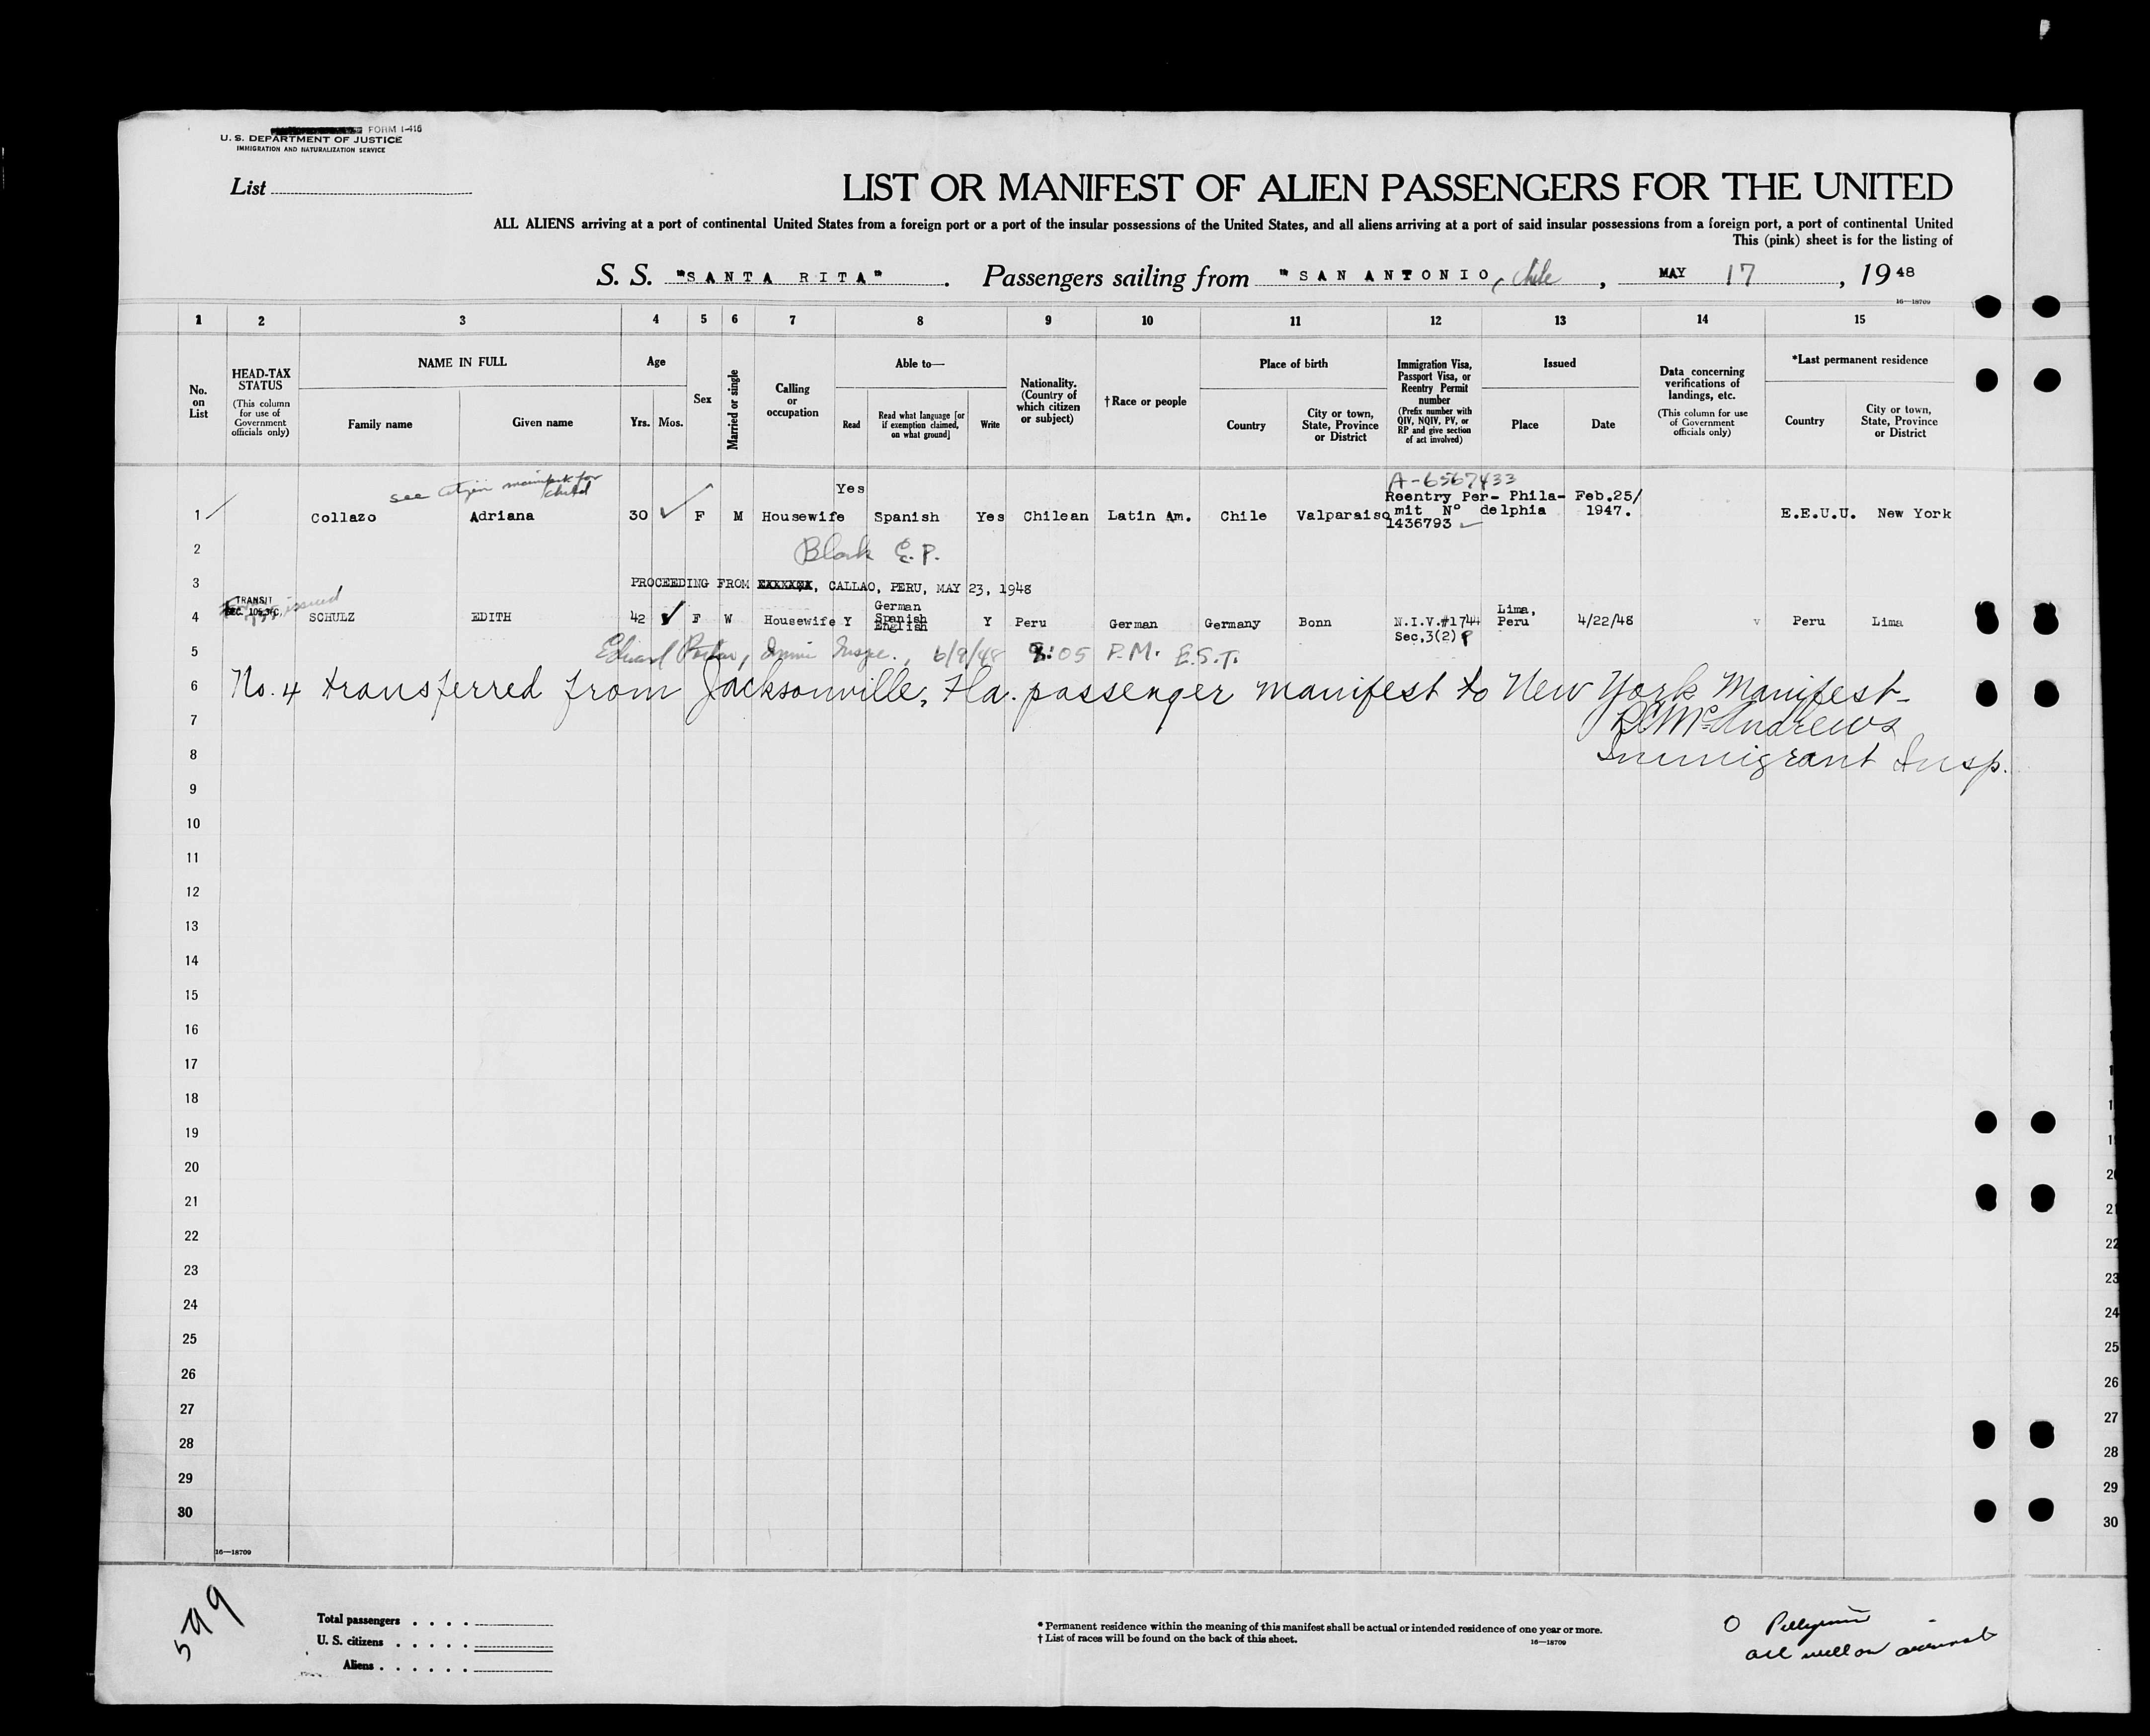 FORM I-416
U. S. DEPARTMENT OF JUSTICE
IMMIGRATION AND NATURALIZATION SERVICE
List
LIST OR MANIFEST OF ALIEN PASSENGERS FOR THE UNITED
ALL ALIENS arriving at a port of continental United States from a foreign port or a port of the insular possessions of the United States, and all aliens arriving at a port of said insular possessions from a foreign port, a port of continental United
This (pink) sheet is for the listing of
S. S. "SANTA RITA". Passengers sailing from "SAN ANTONIO, Chile, MAY 17, 1948
16—18709
1 2 3 4 5 6 7 8 9 10 11 12 13 14 15
No. on List
HEAD-TAX STATUS (This column for use of Government officials only)
NAME IN FULL
Family name Given name
Age
Yrs. Mos.
Sex
Married or single
Calling or occupation
Able to—
Read Read what language [or if exemption claimed, on what ground] Write
Nationality. (Country of which citizen or subject)
†Race or people
Place of birth
Country City or town, State, Province or District
Immigration Visa, Passport Visa, or Reentry Permit number (Prefix number with QIV, NQIV, PV, or RP and give section of act involved)
Issued
Place Date
Data concerning verifications of landings, etc. (This column for use of Government officials only)
*Last permanent residence
Country City or town, State, Province or District
see citizen manifest for child
A-6567433
1 Collazo Adriana 30 F M Housewife Yes Spanish Yes Chilean Latin Am. Chile Valparaiso Reentry Permit Nº 1436793 Phila-delphia Feb.25/1947. E.E.U.U. New York
2 Blank E.P.
3 PROCEEDING FROM XXXXXXX, CALLAO, PERU, MAY 23, 1948
TRANSIT
issued
4 SCHULZ EDITH 42 F W Housewife Y German Spanish English Y Peru German Germany Bonn N.I.V.#1744 Sec.3(2) Lima, Peru 4/22/48 v Peru Lima
5 Edward Immi Inspc., 6/9/48 8:05 P.M. E.S.T.
6 No. 4 transferred from Jacksonville, Fla. passenger manifest to New York Manifest-
7 McAndrews
8 Immigrant Insp.
9
10
11
12
13
14
15
16
17
18
19
20
21
22
23
24
25
26
27
28
29
30
20
21
22
23
24
25
26
27
28
29
30
16—18709
599
Total passengers
U. S. citizens
Aliens
* Permanent residence within the meaning of this manifest shall be actual or intended residence of one year or more.
† List of races will be found on the back of this sheet.
16—18709
all well on arrival